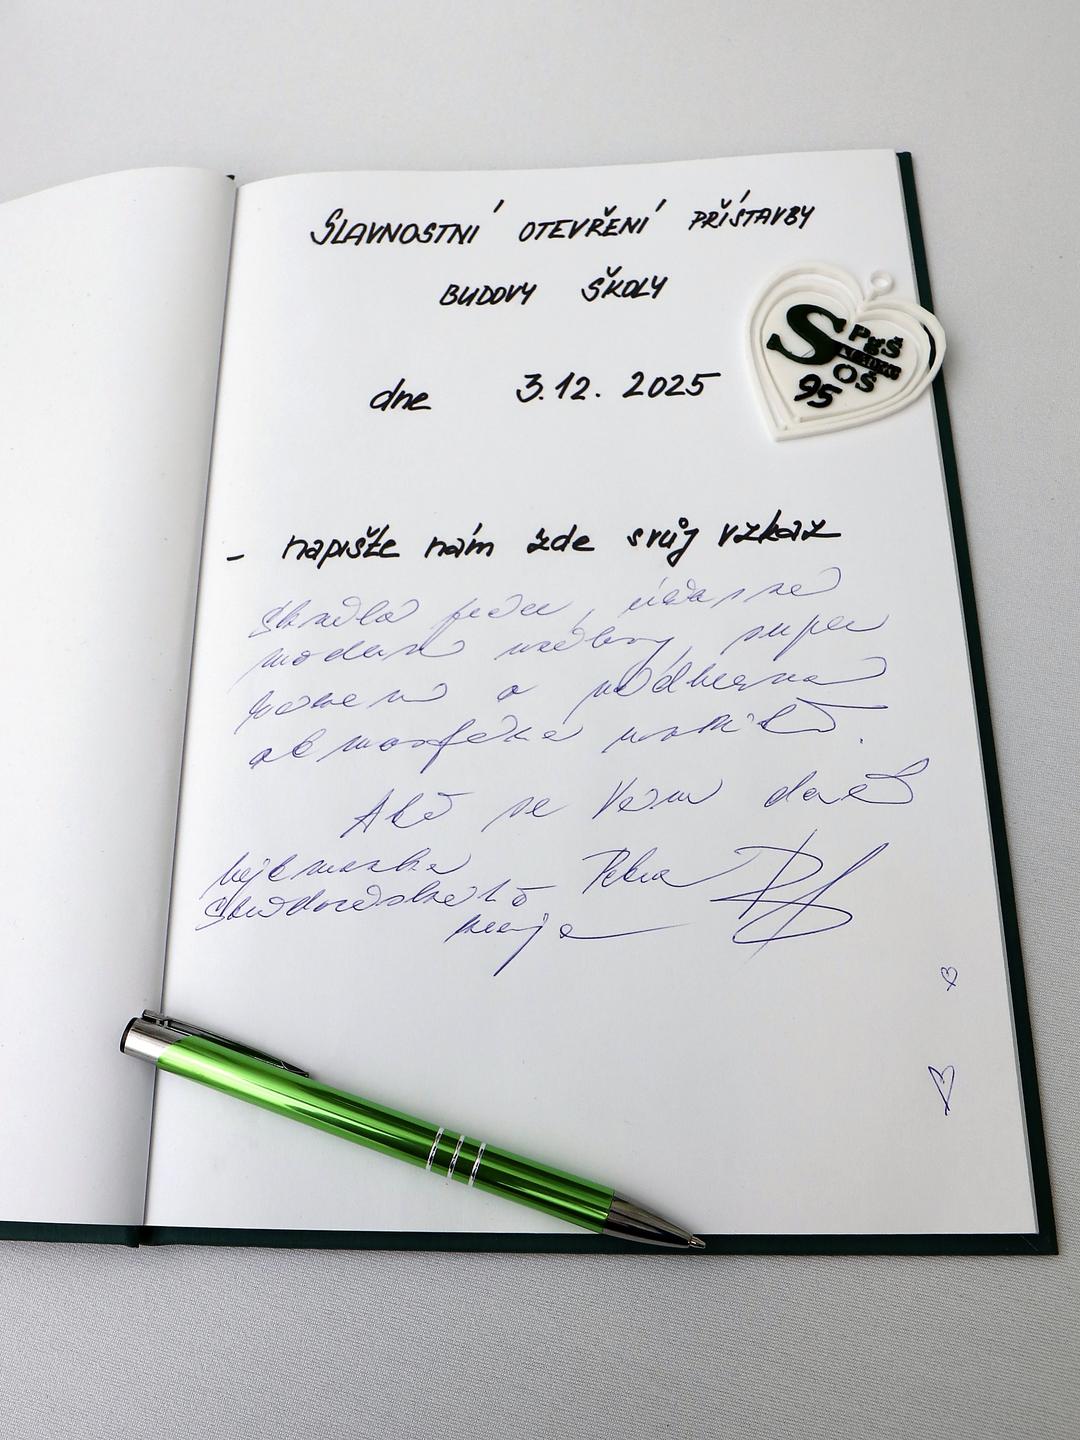 SLAVNOSTNÍ OTEVŘENÍ PŘÍSTAVBY
BUDOVY ŠKOLY
dne 3.12. 2025
S PgŠ
OŠ
95
- napište nám zde svůj vzkaz
Skvělá práce, úžasné
moderní učebny, super
a nádherná
atmosféra
Ať se Vám daří
hejtmanka
Středočeského Petra
kraje